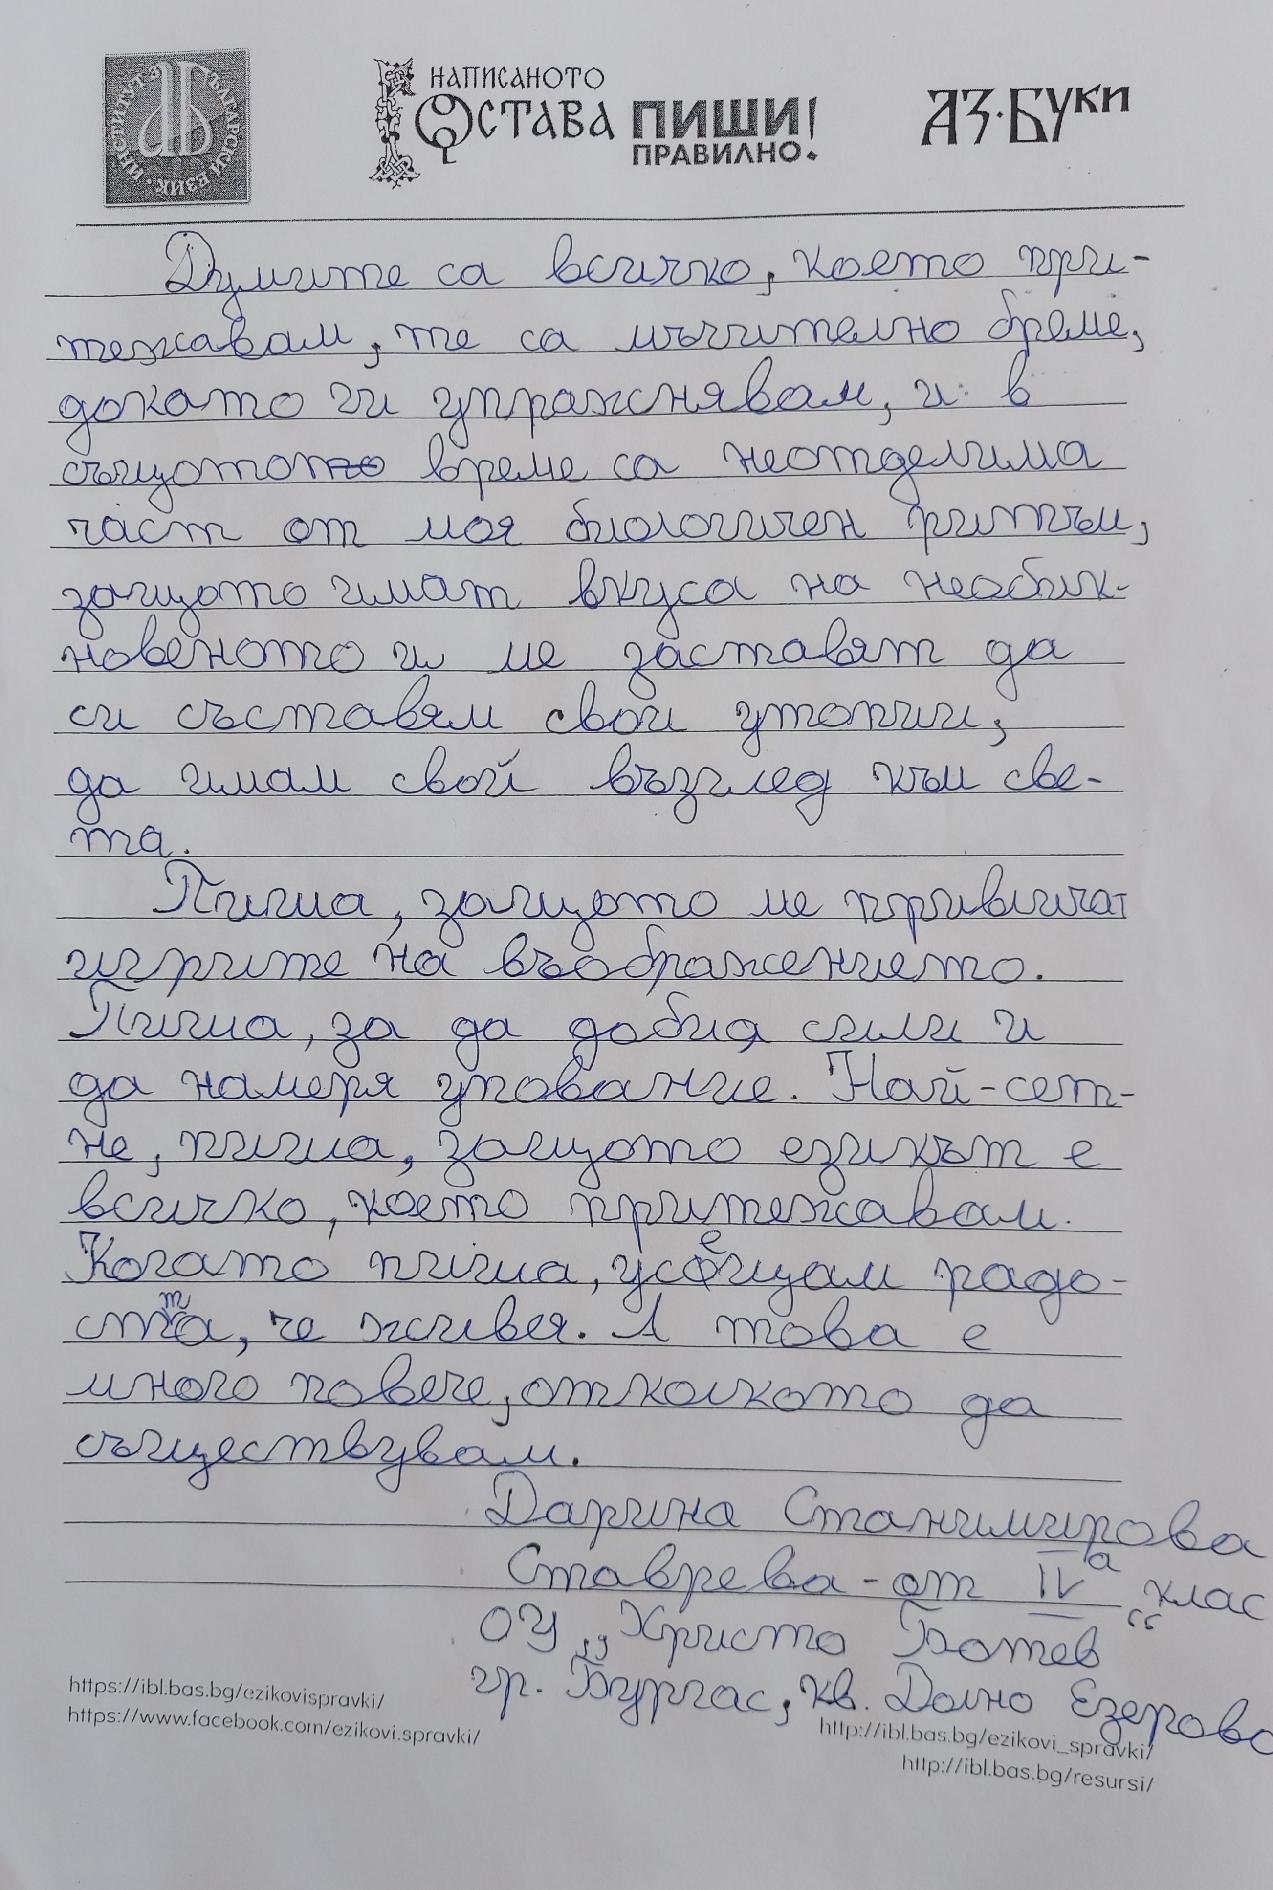 ИНСТИТУТ ЗА БЪЛГАРСКИ ЕЗИК
НАПИСАНОТО
ОСТАВА ПИШИ!
ПРАВИЛНО.
АЗ·БУКИ
Думите са всичко, което при-
тежавам, те са мъчително бреме,
докато ги упражнявам, и в
същотото време са неотделима
част от моя биологичен ритъм,
защото имат вкуса на необик-
новеното и ме заставят да
си съставям свои утопии,
да имам свой възглед към све-
та.
Пиша, защото ме привличат
игрите на въображението.
Пиша, за да добия сили и
да намеря упование. Най-сет-
не, пиша, защото езикът е
всичко, което притежавам.
Когато пиша, усещам радо-
стта, че живея. А това е
много повече, отколкото да
съществувам.
Дарина Станимирова
Ставрева - от IVа клас
ОУ „Христо Ботев“
гр. Бургас, кв. Долно Езерово
https://ibl.bas.bg/ezikovispravki/
https://www.facebook.com/ezikovi.spravki/
http://ibl.bas.bg/ezikovi_spravki/
http://ibl.bas.bg/resursi/